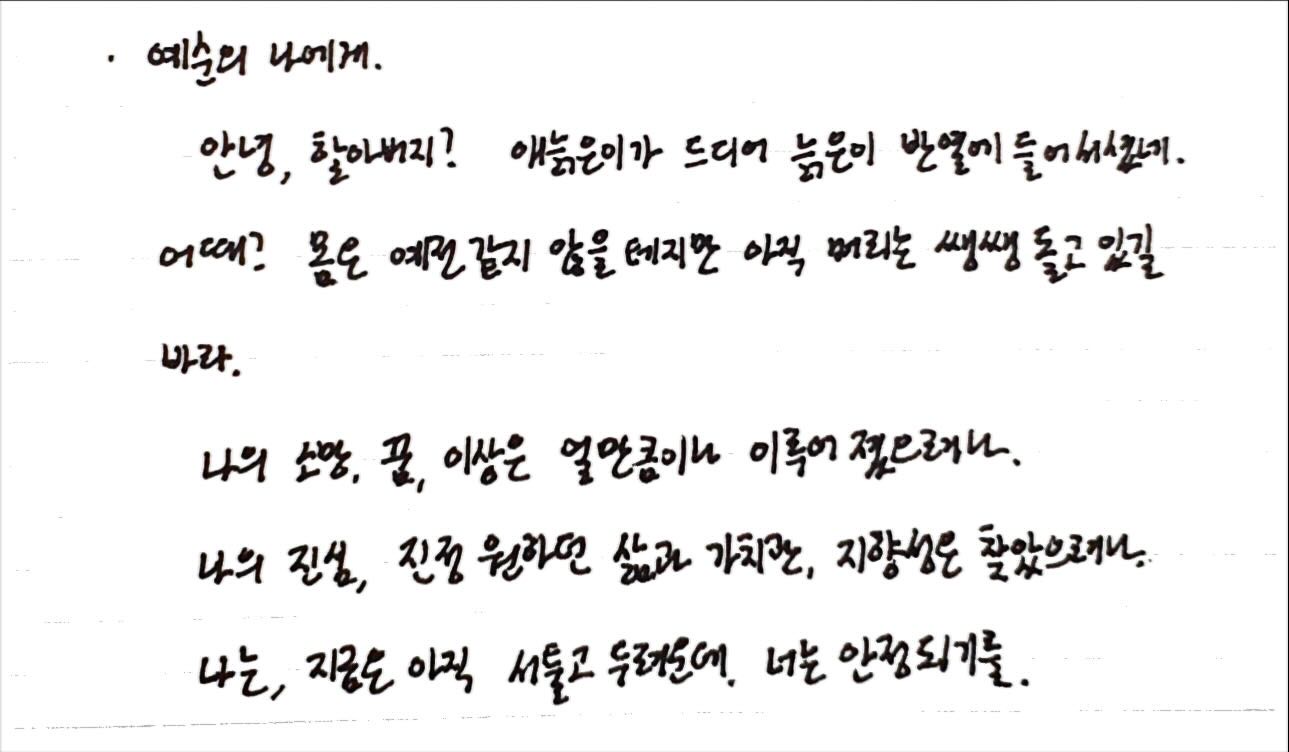 · 예순의 나에게.
안녕, 할아버지? 애늙은이가 드디어 늙은이 반열에 들어서셨네.
어때? 몸은 예전 같지 않을 테지만 아직 머리는 쌩쌩 돌고 있길
바라.
나의 소망, 꿈, 이상은 얼만큼이나 이루어 졌으려나.
나의 진심, 진정 원하던 삶과 가치관, 지향성은 찾았으려나.
나는, 지금은 아직 서툴고 두려운데. 너는 안정되기를.